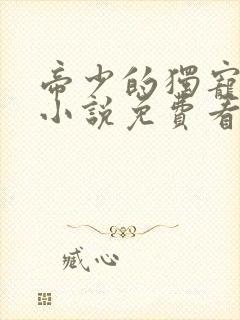 帝少的獨寵
小說免費看
臧心